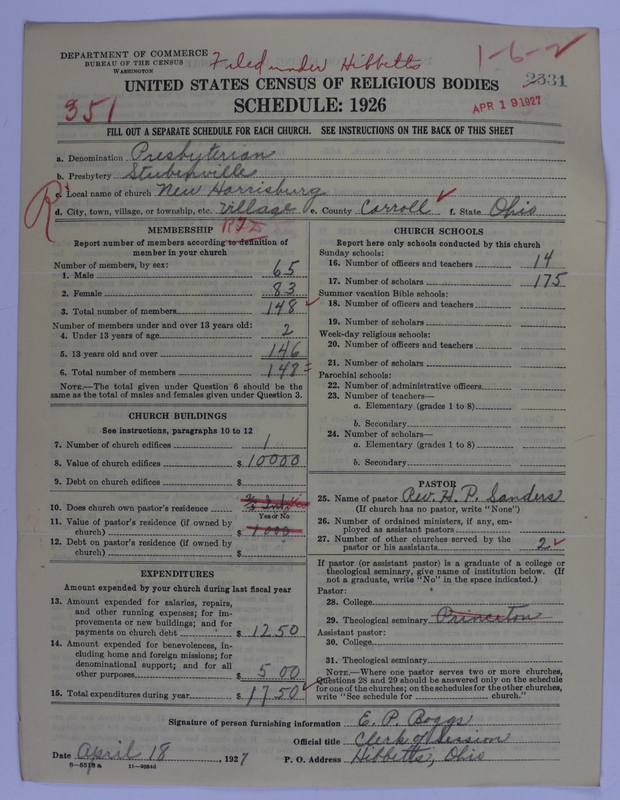 DEPARTMENT OF COMMERCE
BUREAU OF THE CENSUS
WASHINGTON
Filed under Hibbetts
1-6-2
2331
UNITED STATES CENSUS OF RELIGIOUS BODIES
351
SCHEDULE: 1926
APR 19 1927
FILL OUT A SEPARATE SCHEDULE FOR EACH CHURCH. SEE INSTRUCTIONS ON THE BACK OF THIS SHEET
a. Denomination Presbyterian
b. Presbytery Stubenville
c. Local name of church New Harrisburg
R
d. City, town, village, or township, etc. Village e. County Carroll f. State Ohio
RFD
MEMBERSHIP
Report number of members according to definition of
member in your church
Number of members, by sex:
1. Male 65
2. Female 83
3. Total number of members 148
Number of members under and over 13 years old:
4. Under 13 years of age 2
5. 13 years old and over 146
6. Total number of members 148
NOTE.—The total given under Question 6 should be the
same as the total of males and females given under Question 3.
CHURCH BUILDINGS
See instructions, paragraphs 10 to 12
7. Number of church edifices 1
8. Value of church edifices $ 10000
9. Debt on church edifices $
10. Does church own pastor's residence
Yes or No
11. Value of pastor's residence (if owned by
church) $ 1000
12. Debt on pastor's residence (if owned by
church) $
EXPENDITURES
Amount expended by your church during last fiscal year
13. Amount expended for salaries, repairs,
and other running expenses; for im-
provements or new buildings; and for
payments on church debt $ 1250
14. Amount expended for benevolences, in-
cluding home and foreign missions; for
denominational support; and for all
other purposes $ 500
15. Total expenditures during year $ 1750
CHURCH SCHOOLS
Report here only schools conducted by this church
Sunday schools:
16. Number of officers and teachers 14
17. Number of scholars 175
Summer vacation Bible schools:
18. Number of officers and teachers
19. Number of scholars
Week-day religious schools:
20. Number of officers and teachers
21. Number of scholars
Parochial schools:
22. Number of administrative officers
23. Number of teachers—
a. Elementary (grades 1 to 8)
b. Secondary
24. Number of scholars—
a. Elementary (grades 1 to 8)
b. Secondary
PASTOR
25. Name of pastor Rev. H. P. Sanders
(If church has no pastor, write "None")
26. Number of ordained ministers, if any, em-
ployed as assistant pastors
27. Number of other churches served by the
pastor or his assistants 2
If pastor (or assistant pastor) is a graduate of a college or
theological seminary, give name of institution below. (If
not a graduate, write "No" in the space indicated.)
Pastor:
28. College
29. Theological seminary Princeton
Assistant pastor:
30. College
31. Theological seminary
NOTE.—Where one pastor serves two or more churches,
Questions 28 and 29 should be answered only on the schedule
for one of the churches; on the schedules for the other churches,
write "See schedule for church."
Signature of person furnishing information E. P. Boggs
Official title Clerk of Session
Date April 18, 1927 P. O. Address Hibbetts, Ohio